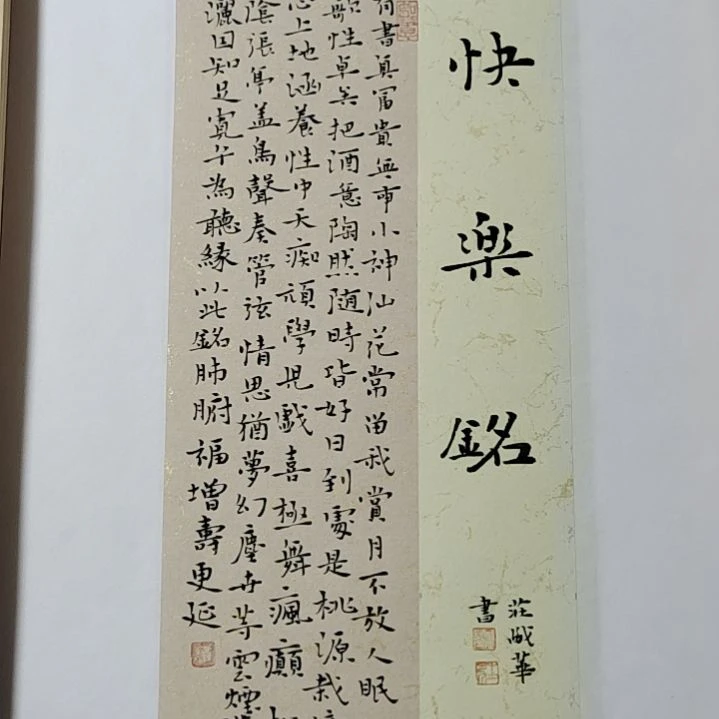 快
楽
銘
莊
華
書
書真冨貴無事小神仙花常留我賞月不放人眠
性卓把酒意陶然随時皆好日到處是桃源栽
心上地涵養性中天痴頑學児戲喜極舞瘋癲
陰張亭盖鳥聲奏管弦情思猶夢幻塵世等雲煙
灑因知足寬平為聽緣以此銘肺腑福增壽更延